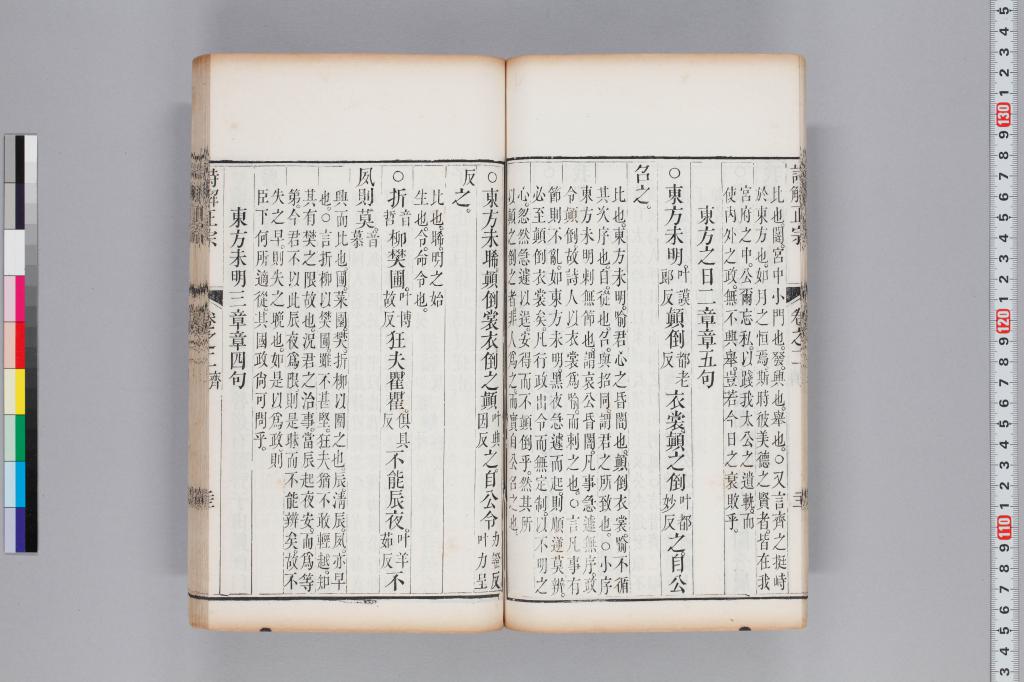 詩解正宗
卷之二
齊
比也闥宮中小門也。發與也舉也。○又言齊之挺峙
於東方也。如月之恒焉斯時彼美德之賢者皆在我
宮府之中。公爾忘私。以踐我太公之遺軌。而
使內外之政。無不興舉。豈若今日之衰敗乎。
東方之日二章章五句
○東方未明。叶謨郎反顛倒都老反衣裳。顛之倒叶都妙反之自公
召之。
比也。東方未明。喻君心之昏闇也。顛倒衣裳。喻不循
其次序也。自。從也。召。與招同。謂君之所致也。○小序
東方未明刺無節也。謂哀公昏闇。凡事急遽無序。政
令顛倒。故詩人以衣裳為喻。而刺之也。○言凡事有
節則不亂。如東方未明黑夜急遽而起。則順逆莫辨。
必至顛倒衣裳矣。凡行政出令而無定制。以不明之
心。忽然急遽以逞。安得而不顛倒乎。然其所
以顛之倒之者。非人為之。而實自公召之也。
○東方未晞。顛倒裳衣。倒之顛叶典因反之。自公令力證反叶力呈
反之。
比也。晞。明之始
生也。令。命令也。
○折音哲柳樊圃。叶博故反狂夫瞿瞿。俱具反不能辰夜。叶羊茹反不
夙則莫。音慕
興而比也圃菜園樊折柳以園之也辰清辰夙亦早
也。○言折柳以樊圃雖不甚堅。狂夫猶不敢輕越。知
其有樊之限故也。況君之治事。當辰起夜安。而為等
第。今君不以此辰夜為限。則是昧而不能辨矣。故不
失之早。則失之晚也。如是以為政。則
臣下何所適從。其國政尙可問乎。
東方未明三章章四句
詩解正宗
卷之二
齊